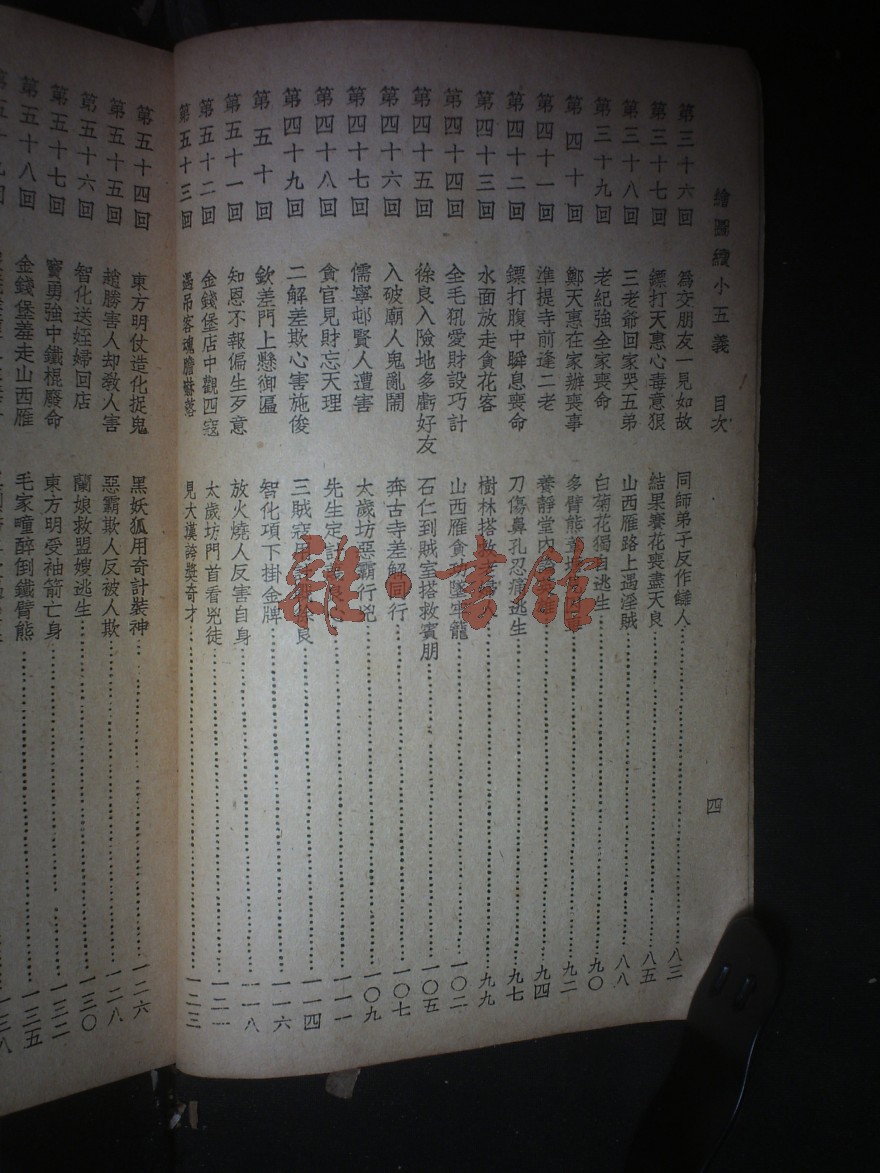 繪圖續小五義 目次 四
第三十六回 為交朋友一見如故 同師弟子反作讎人 八三
第三十七回 鏢打天惠心毒意狠 結果養花喪盡天良 八五
第三十八回 三老爺回家哭五弟 山西雁路上遇淫賊 八八
第三十九回 老紀強全家喪命 白菊花獨自逃生 九〇
第四十回 鄭天惠在家辦喪事 多臂熊 九二
第四十一回 準提寺前逢二老 養靜堂內 九四
第四十二回 鏢打腹中瞬息喪命 刀傷鼻孔忍痛逃生 九七
第四十三回 水面放走貪花客 樹林搭救 九九
第四十四回 金毛犼愛財設巧計 山西雁貪 墜牢籠 一〇二
第四十五回 徐良入險地多虧好友 石仁到賊室搭救賓朋 一〇五
第四十六回 入破廟人鬼亂鬧 奔古寺差解同行 一〇七
第四十七回 儒寧邨賢人遭害 太歲坊惡霸行兇 一〇九
第四十八回 貪官見財忘天理 先生定計 一一一
第四十九回 二解差欺心害施俊 三賊寇用 徐良 一一四
第五十回 欽差門上懸御匾 智化項下掛金牌 一一六
第五十一回 知恩不報偏生歹意 放火燒人反害自身 一一八
第五十二回 金錢堡店中觀四寇 太歲坊門首看兇徒 一二一
第五十三回 遇吊客魂膽嚇落 見大漢誇獎奇才 一二三
第五十四回 東方明仗造化捉鬼 黑妖狐用奇計裝神 一二六
第五十五回 趙勝害人却教人害 惡霸欺人反被人欺 一二八
第五十六回 智化送妊婦回店 蘭娘救盟嫂逃生 一三〇
第五十七回 竇勇強中鐵棍廢命 東方明受袖箭亡身 一三二
第五十八回 金錢堡羞走山西雁 毛家疃醉倒鐵臂熊 一三五
第五十九回 一三八
雜·書館